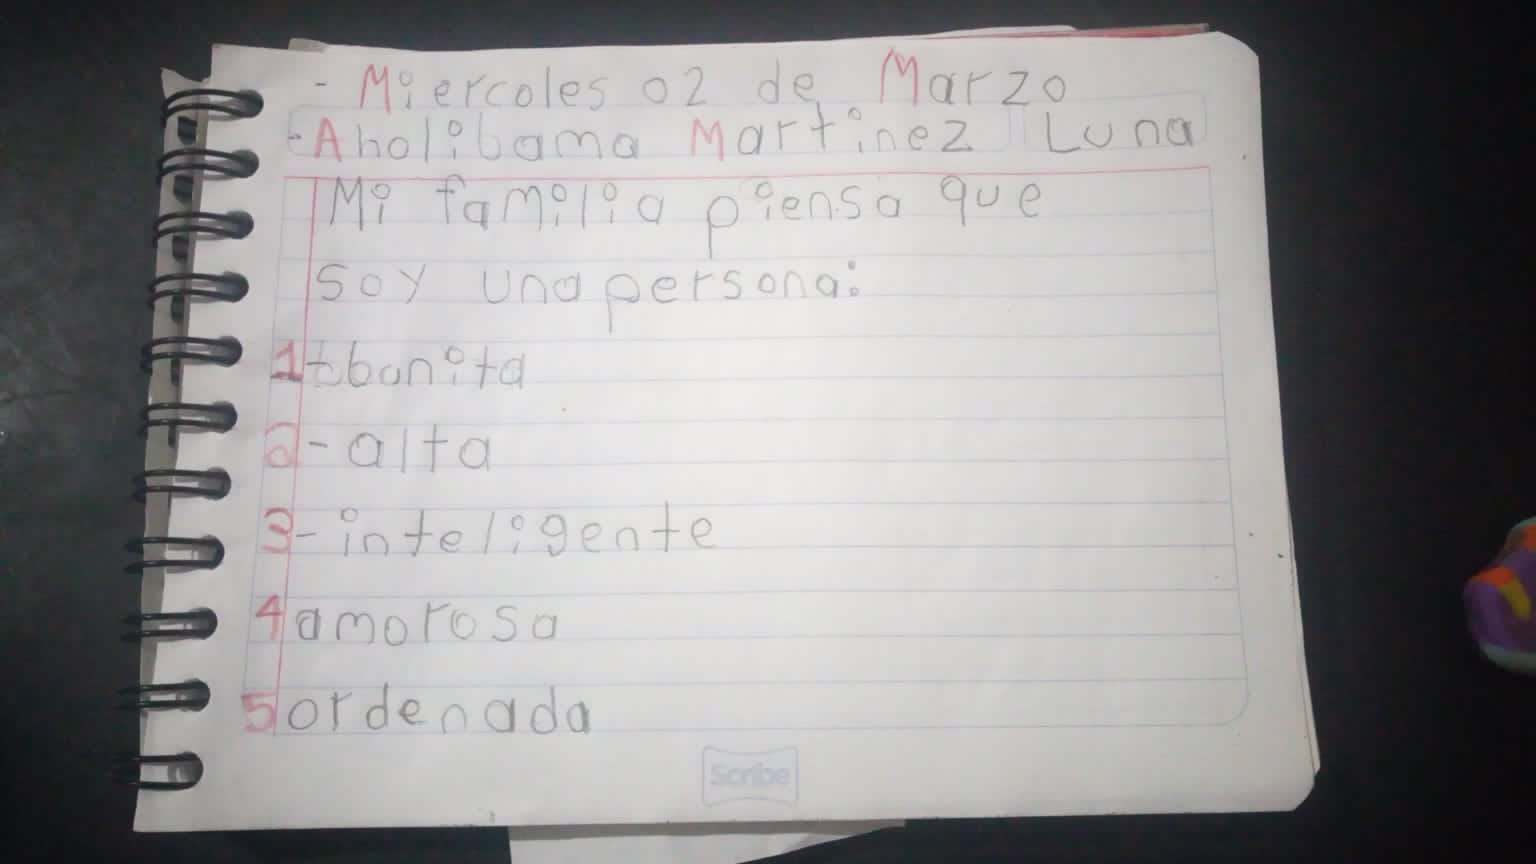 - Miercoles 02 de Marzo
- Aholibama Martinez Luna
Mi familia piensa que
soy una persona:
1 bonita
2-alta
3-inteligente
4 amorosa
5 ordenada
Scribe